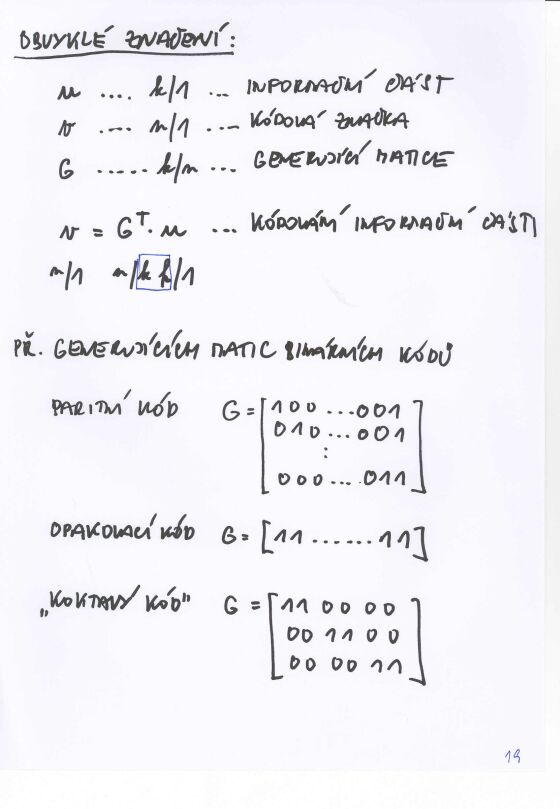 OBVYKLÉ ZNAČENÍ:
u .... k/1 ... INFORMAČNÍ ČÁST
v .... n/1 .... KÓDOVÁ ZNAČKA
G ..... k/n ... GENERUJÍCÍ MATICE
v = Gᵀ. u ... KÓDOVÁNÍ INFORMAČNÍ ČÁSTI
n/1 n/k k/1
PŘ. GENERUJÍCÍCH MATIC BINÁRNÍCH KÓDŮ
PARITNÍ KÓD G = [100...001
010...001
:
000....011]
OPAKOVACÍ KÓD G = [11......11]
„KOKTAVÝ KÓD" G = [11 00 00
00 11 00
00 00 11]
19